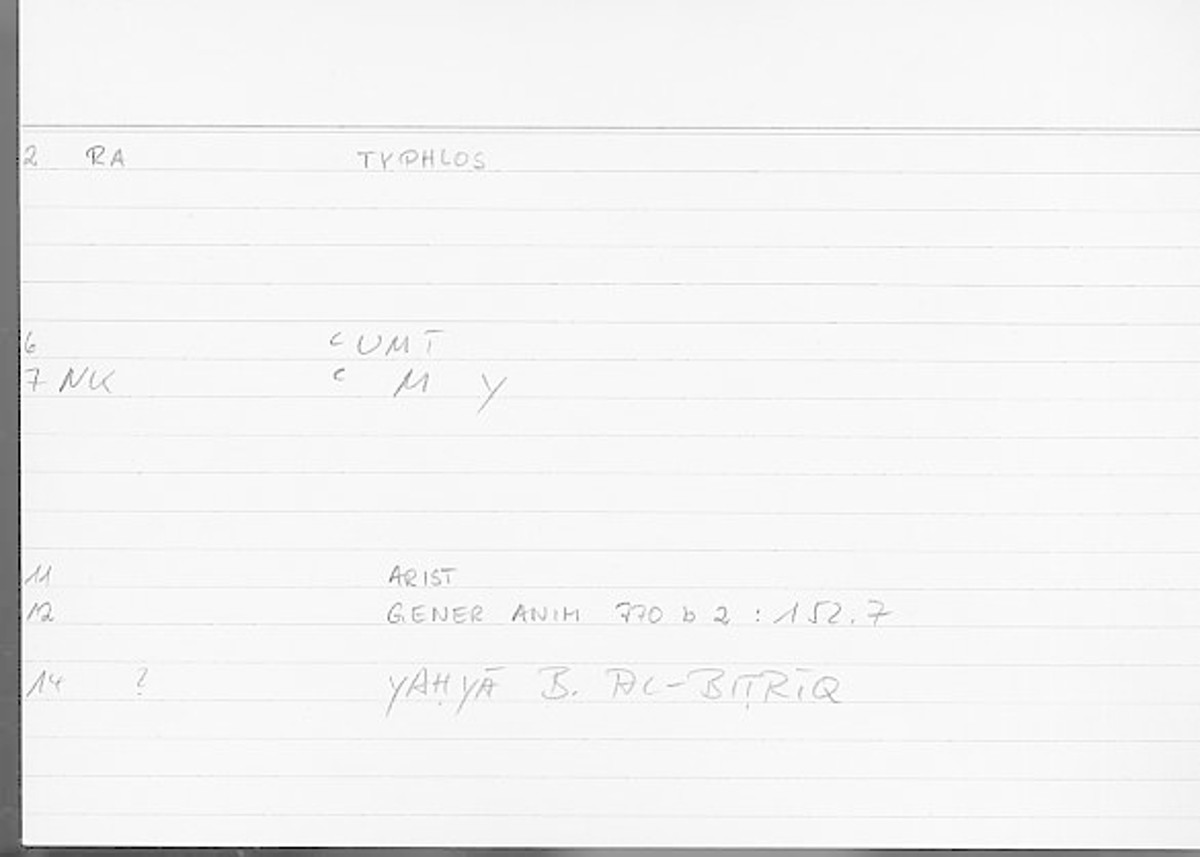 2 RA TYPHLOS
6 ʿUMĪ
7 NK ʿ M Y
11 ARIST
12 GENER ANIM 770 b 2 : 152.7
14 ? YAḤYĀ B. AL-BIṬRĪQ